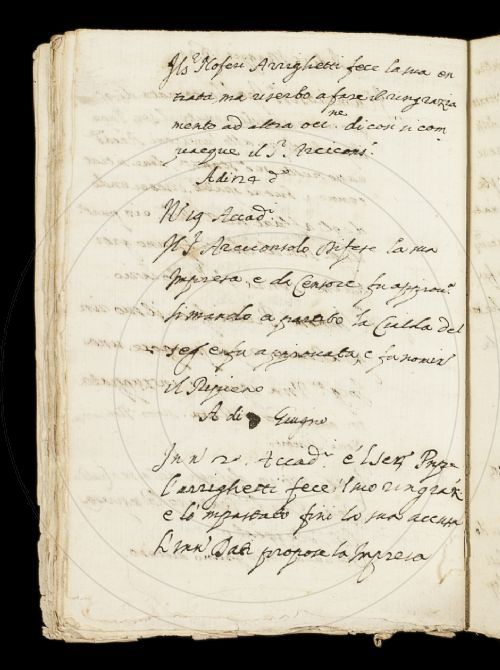 Il S.r Noferi Arrighetti fece la sua en
trata ma riserbo a fare il ringrazia
mento ad altra occ.ne di cosi si com
piacque il S.r Arcicons.o
A di 24 d.o
N.o 19 Accad.i
Il S.r Arciconsolo difese la sua
Impresa, e da Censore fu approv.a
Si mando a partito la Cialda del
e fu approvata, e fu nomin.
il Ripieno
A di Giugno
In n.o 20 Accad.i e'l Ser.mo Prpe
l'arrighetti fece il suo ringraz.
e lo 'mpastato fini la sua accusa
L'Inn. Dati propose la Impresa